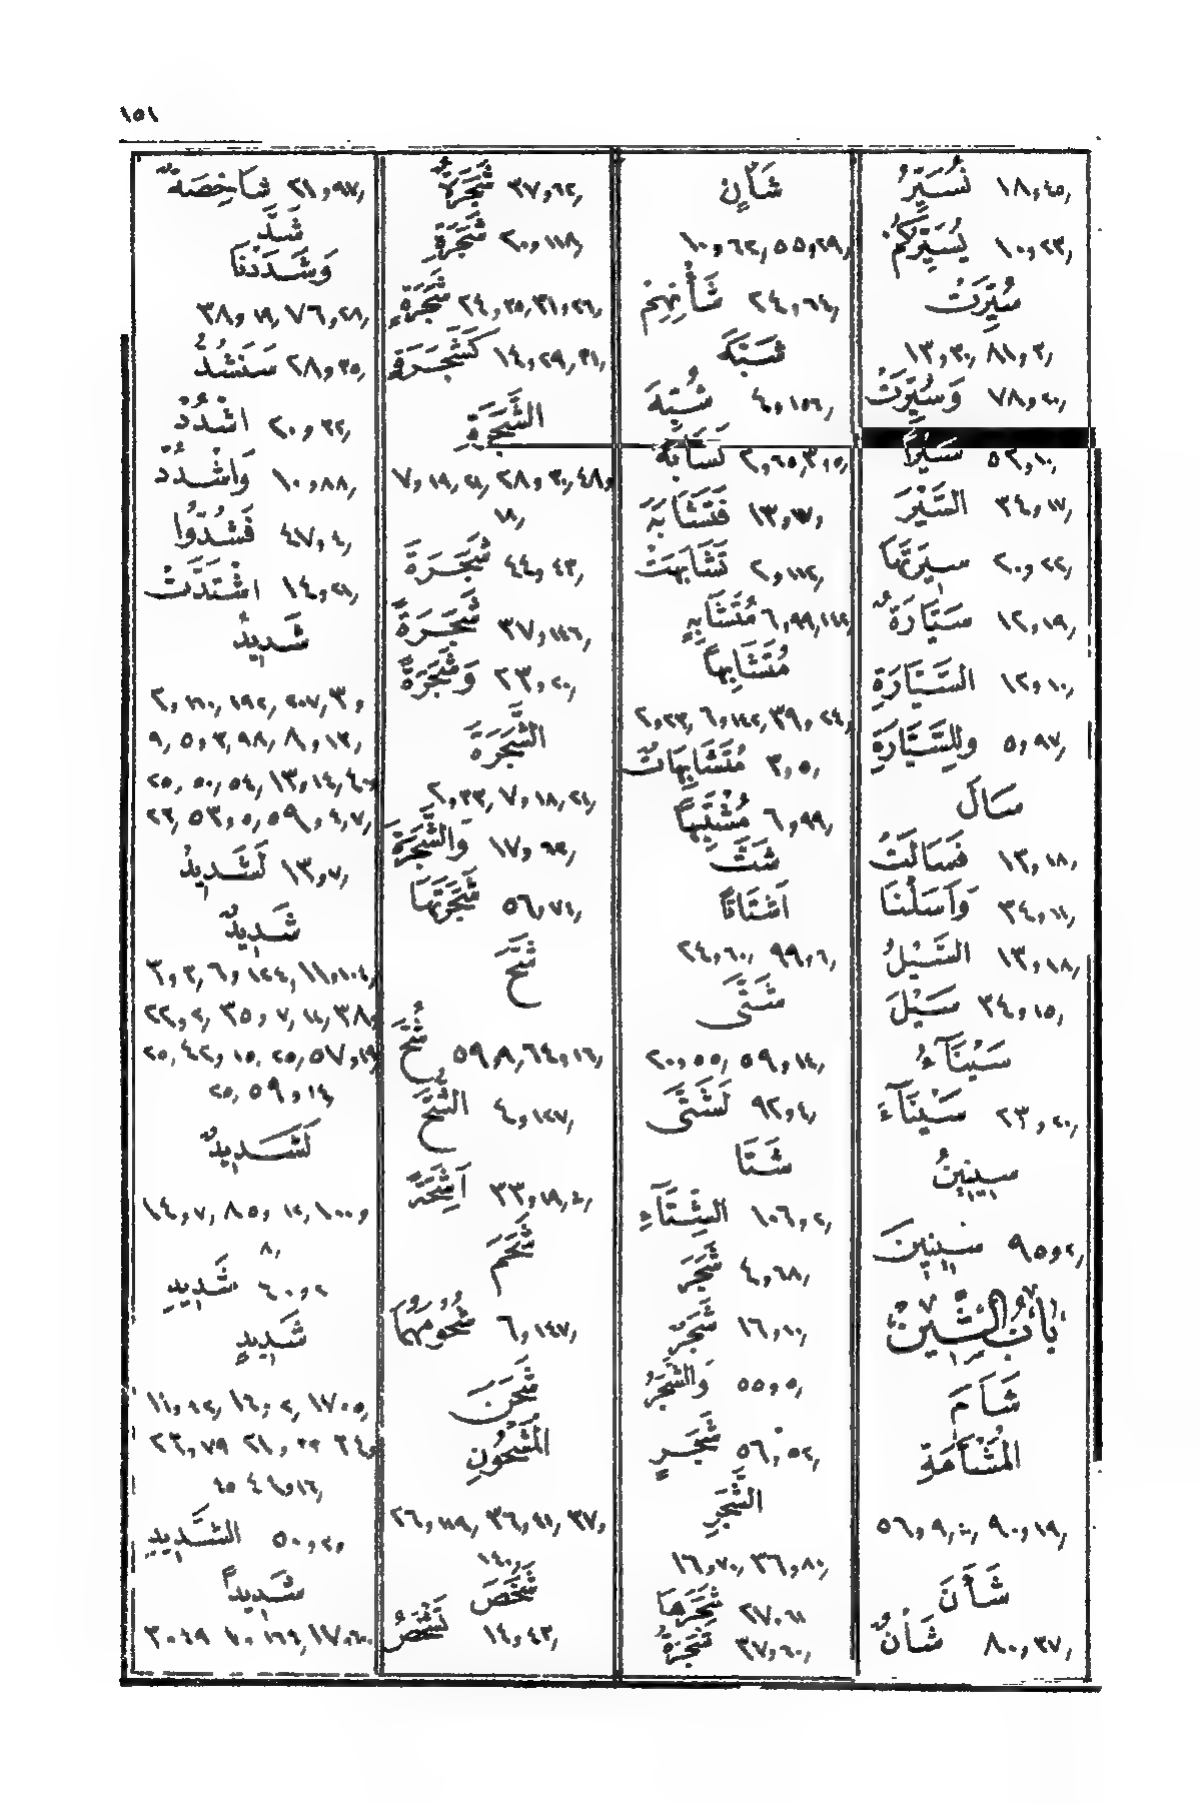 ١٥١
نُسَيِّرُ ١٨,٤٥
يُسَيِّرُكُمْ ١٠,٢٣
سُيِّرَتْ
١٣,٣٠ ,٨١,٣
وَسُيِّرَتْ ٧٨,٢٠
سَيْرًا ٥٢,١٠
السَّيْرَ ٣٤,١٧
سِيرَتَهَا ٢٠,٢٢
سَيَّارَةٌ ١٢,١٩
السَّيَّارَةِ ١٢,١٠
وَلِلسَّيَّارَةِ ٥,٩٧
سَالَ
فَسَالَتْ ١٣,١٨
وَاَسَلْنَا ٣٤,١١
السَّيْلُ ١٣,١٨
سَيْلَ ٣٤,١٥
سَيْنَآءُ
سَيْنَآءَ ٢٣,٢٠
سِينِينُ
سِينِينَ ٩٥,٢
بَابُ الشِّينْ
شَأَمَ
الْمَشْأَمَةِ
٥٦,٩,٩ ,٩٠,١٩
شَأَنَ
شَأْنٌ ٨٠,٣٧
شَأْنٍ
١٠,٦٢, ٥٥,٢٩
شَأْنِهِمْ ٢٤,٦٤
شَبَّهَ
شُبِّهَ ٤,١٥٦
تَشَابَهَ ٢,٦٥,٣,٥
فَتَشَابَهَ ١٣,١٧
تَشَابَهَتْ ٢,١١٢
مُتَشَابِهٍ ٦,٩٩,١٤١
مُتَشَابِهاً
٢,٢٣, ٦,١٤٢, ٣٩,٢٤
مُتَشَابِهَاتٌ ٣,٥
مُشْتَبِهاً ٦,٩٩
شَتَّ
اَشْتَاتاً
٢٤,٦٠, ٩٩,٦
شَتَّى
٢٠,٥٥, ٥٩,١٤
لَشَتَّى ٩٢,٤
شَتَا
الشِّتَآءِ ١٠٦,٢
شَجَرَ ٤,٦٨
شَجَرٌ ١٦,١٠
وَالشَّجَرُ ٥٥,٥
شَجَرٍ ٥٦,٥٢
الشَّجَرِ
١٦,٧٠, ٣٦,٨٠
شَجَرَهَا ٢٧,٦١
شَجَرَةُ ٣٧,٦٠
شَجَرَةٌ ٣٧,٦٢
شَجَرَةِ ٢٠,١١٨
شَجَرَةٍ ٢٤,٣٥,٣١,٢٦
كَشَجَرَةٍ ١٤,٢٩,٣١
الشَّجَرَةِ
٧,١٩, ٢١, ٢٨,٣٠,٤٨
١٨
شَجَرَةَ ٤٤,٤٣
شَجَرَةً ٣٧,١٤٦
وَشَجَرَةً ٢٣,٢٠
الشَّجَرَةَ
٢,٣٣, ٧,١٨,٢١
وَالشَّجَرَةَ ١٧,٦٢
شَجَرَتَهَا ٥٦,٧١
شَحَّ
شُحَّ ٥٩,٩,٦٤,١٦
الشُّحَّ ٤,١٢٧
اَشِحَّةً ٣٣,١٩
شَحَمَ
شُحُومَهُمَا ٦,١٤٧
شَحَنَ
الْمَشْحُونِ
٢٦,١١٩, ٣٦,٤١, ٣٧
١٤٠
شَخَصَ
تَشْخَصُ ١٤,٤٢
شَاخِصَةٌ ٢١,٩٧
شَدَّ
وَشَدَدْنَا
٣٨,١٩,٧٦,٢٨
سَنَشُدُّ ٢٨,٣٥
اشْدُدْ ٢٠,٣٢
وَاشْدُدْ ١٠,٨٨
فَشُدُّوا ٤٧,٤
اشْتَدَّتْ ١٤,٢١
شَدِيدُ
٢,١٦٠, ١٩٢, ٢٠٧,٣
٩,٥,٣,٩٨,٨,١٣
٢٥, ٥٠,٥٤, ١٣,١٤,٤٠
٢٦,٥٣,٥,٥٩,٤,٧
لَشَدِيدُ ١٣,٧
شَدِيدٌ
٣,٣,٦,١٢٤,١١,١٠٤
٢٢,٢, ٣٥,٧, ١١,٣٨
٢٥,٤٢,١٥, ٢٥,٥٧,١٩
٢٥, ٥٩,١٤
لَشَدِيدٌ
١٤,٧, ٨٥, ١٢,١٠٠
٨
شَدِيدِ ٤٠,٢
شَدِيدٍ
٢٣,٧٩
السَّدِيدِ ٥٠,٢
شَدِيداً